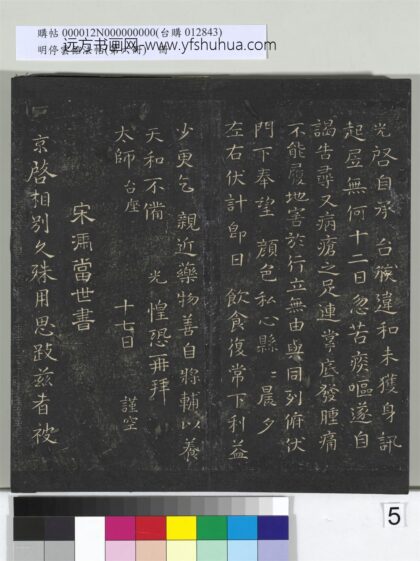 購帖 000012N000000000(台購 012843)
远方书画网 www.yfshuhua.com
光啓自承 台候違和未獲身訊
起居無何十二日忽苦痰嘔遂自
謁告尋又病瘡之足連掌底發腫痛
不能履地害於行立無由與同列俯伏
門下奉望 顏色私心縣〻晨夕
左右伏計即日 飲食復常下利益
少更乞 親近藥物善自將輔以養
天和不備 光 惶恐再拜
太師 台座 十七日 謹空
宋馮當世書
京啓相別久殊用思跂茲者被
5